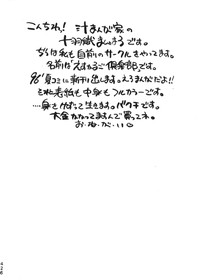 こんちわ! 汁まんが家の
十羽織ましゅまろです。
ちなみ私も自前のサークルをやってます。
名前はえすかるご倶楽部です。
96'夏コミに新刊出します。えろまんがだよ!!
それも表紙も中身もフルカラーです。
……身をけずって生きます。バクチです。
大金かかってますんで買ってネ。
お・ね・が・い♡